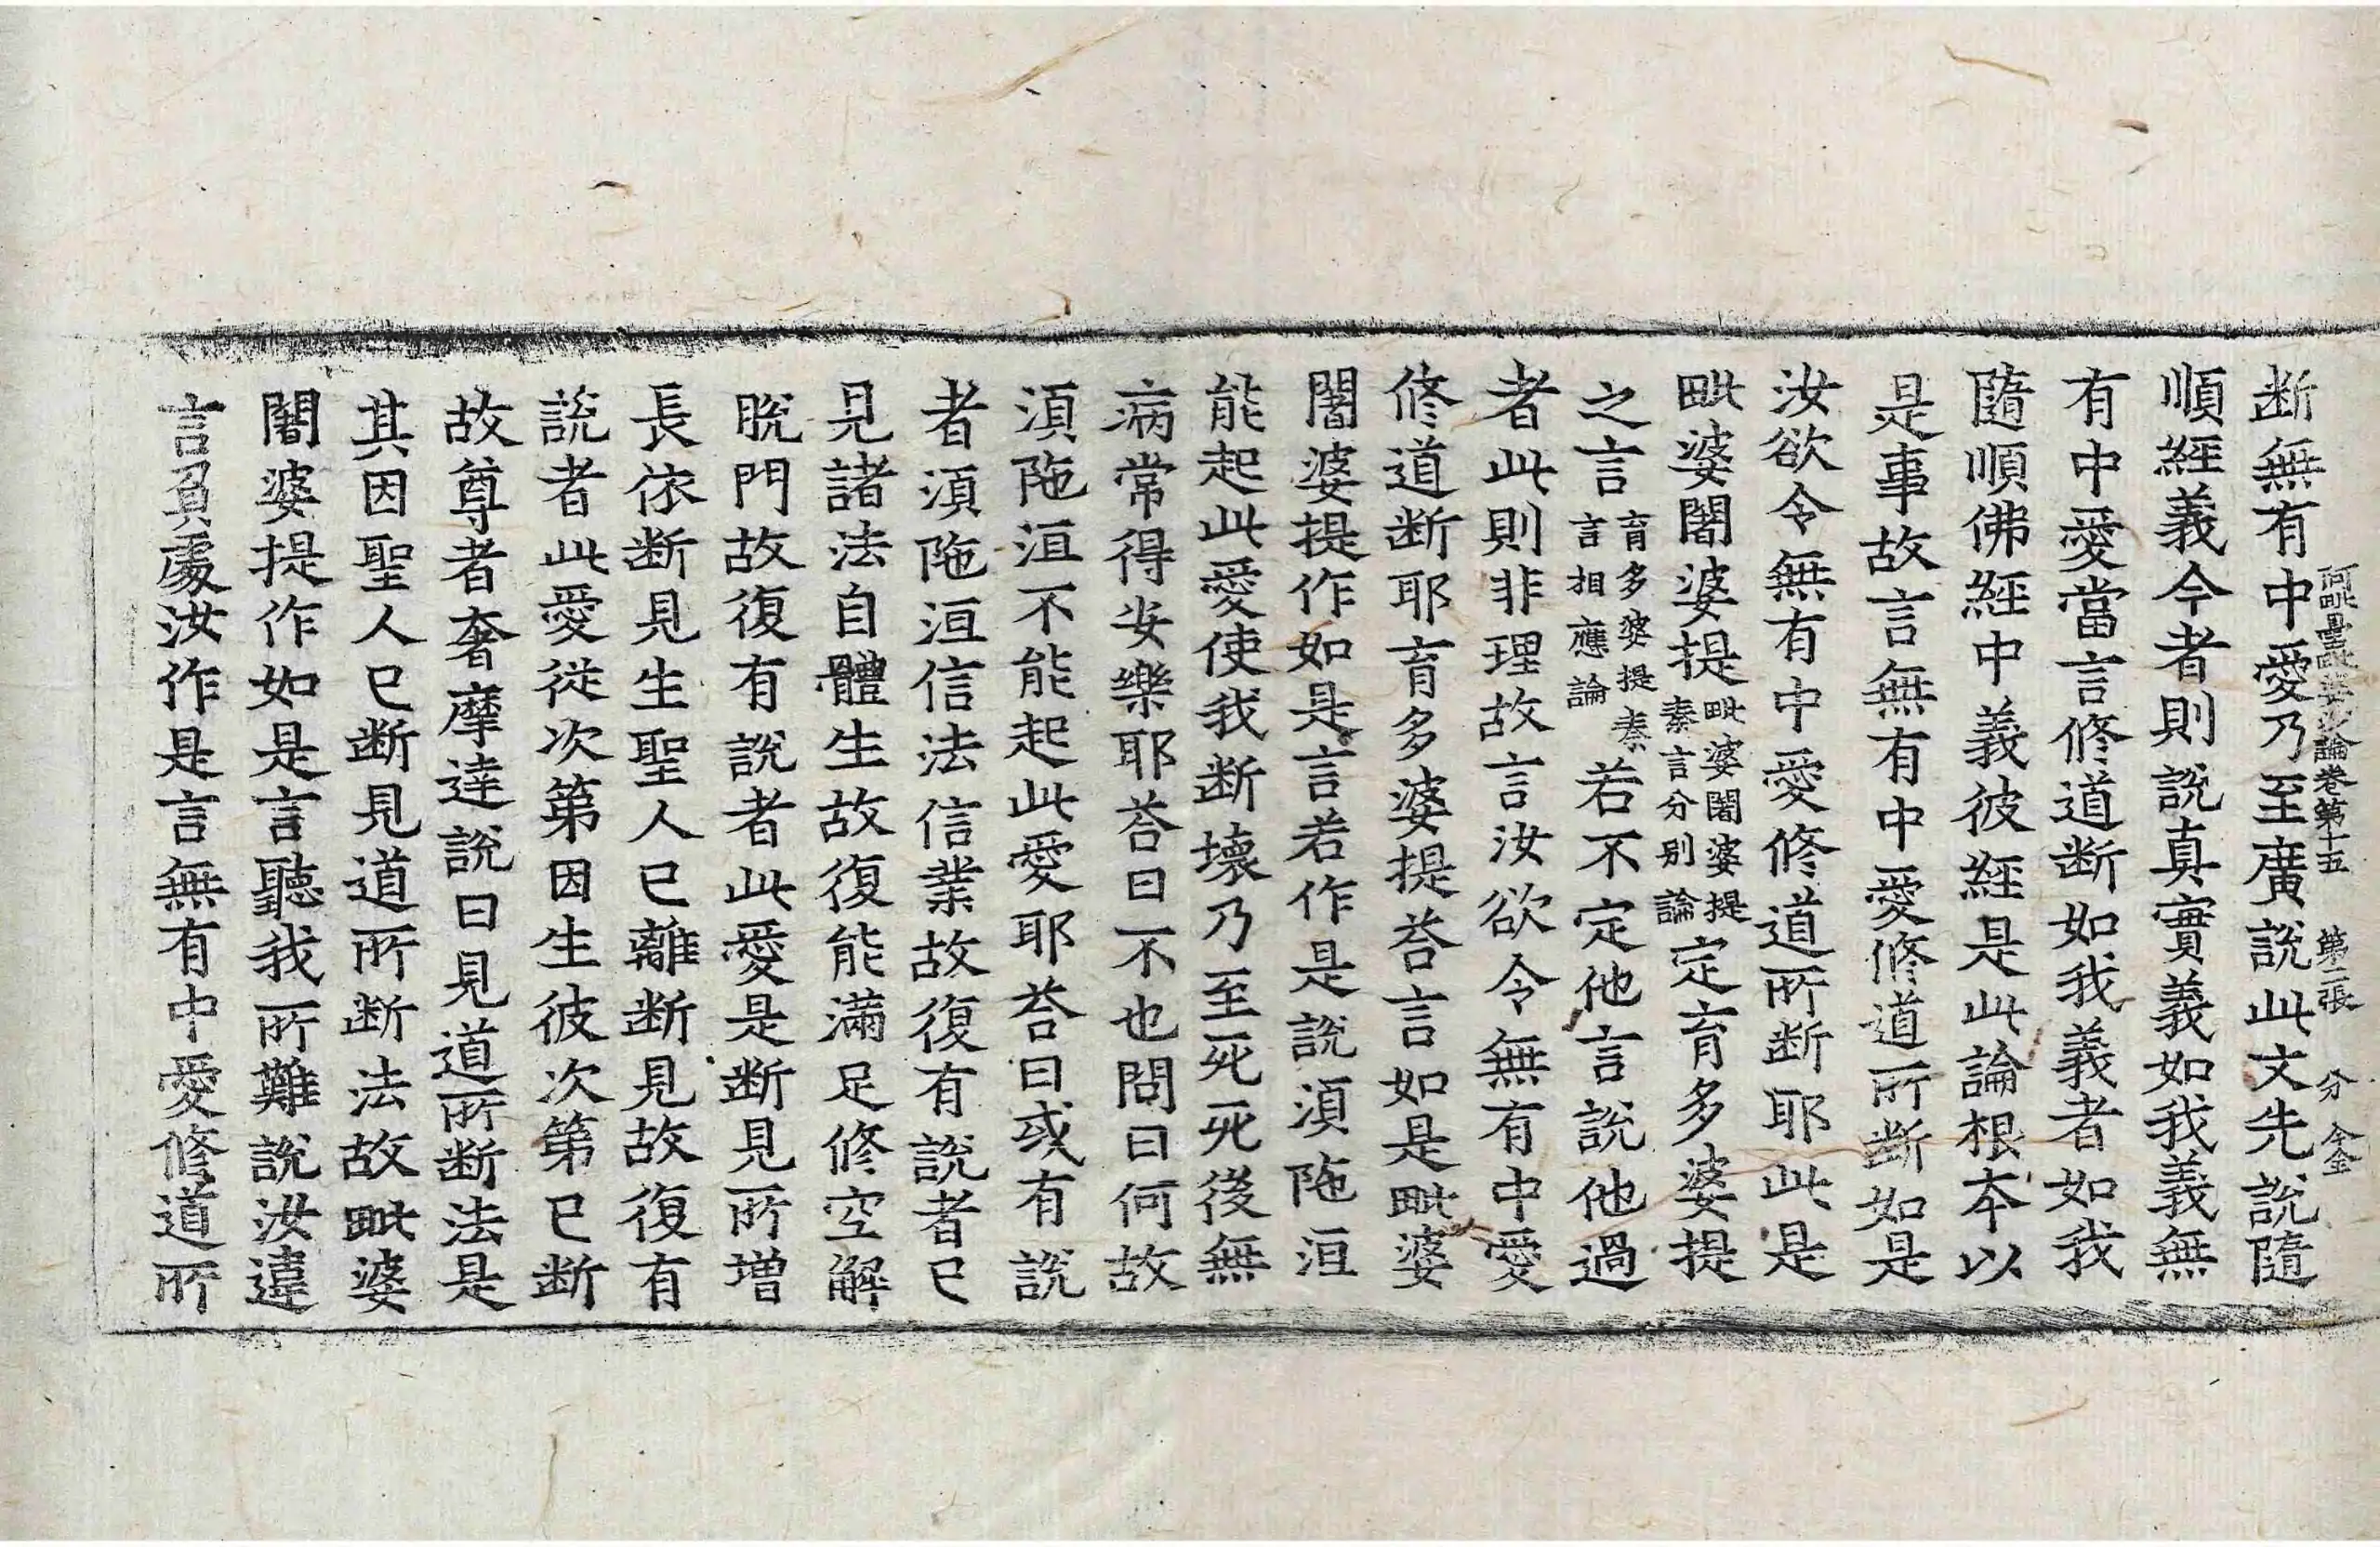 阿毗曇毗婆沙論卷第十五　第二張　分　金
断無有中愛乃至廣說此文先說隨
順經義今者則說真實義如我義無
有中愛當言修道断如我義者如我
隨順佛經中義彼經是此論根本以
是事故言無有中愛修道所断如是
汝欲令無有中愛修道所断耶此是
毗婆闍婆提毗婆闍婆提秦言分别論定育多婆提
之言育多婆提秦言相應論若不定他言說他過
者此則非理故言汝欲令無有中愛
修道断耶育多婆提荅言如是毗婆
闍婆提作如是言若作是說湏陁洹
能起此愛使我断壞乃至死死後無
病常得安樂耶荅曰不也問曰何故
湏陁洹不能起此愛耶荅曰或有說
者湏陁洹信法信業故復有說者已
見諸法自體生故復能滿足修空解
脫門故復有說者此愛是断見所增
長依断見生聖人已離断見故復有
說者此愛從次第因生彼次第已断
故尊者奢摩達說曰見道所断法是
其因聖人已断見道所断法故毗婆
闍婆提作如是言聽我所難說汝違
言負處汝作是言無有中愛修道所